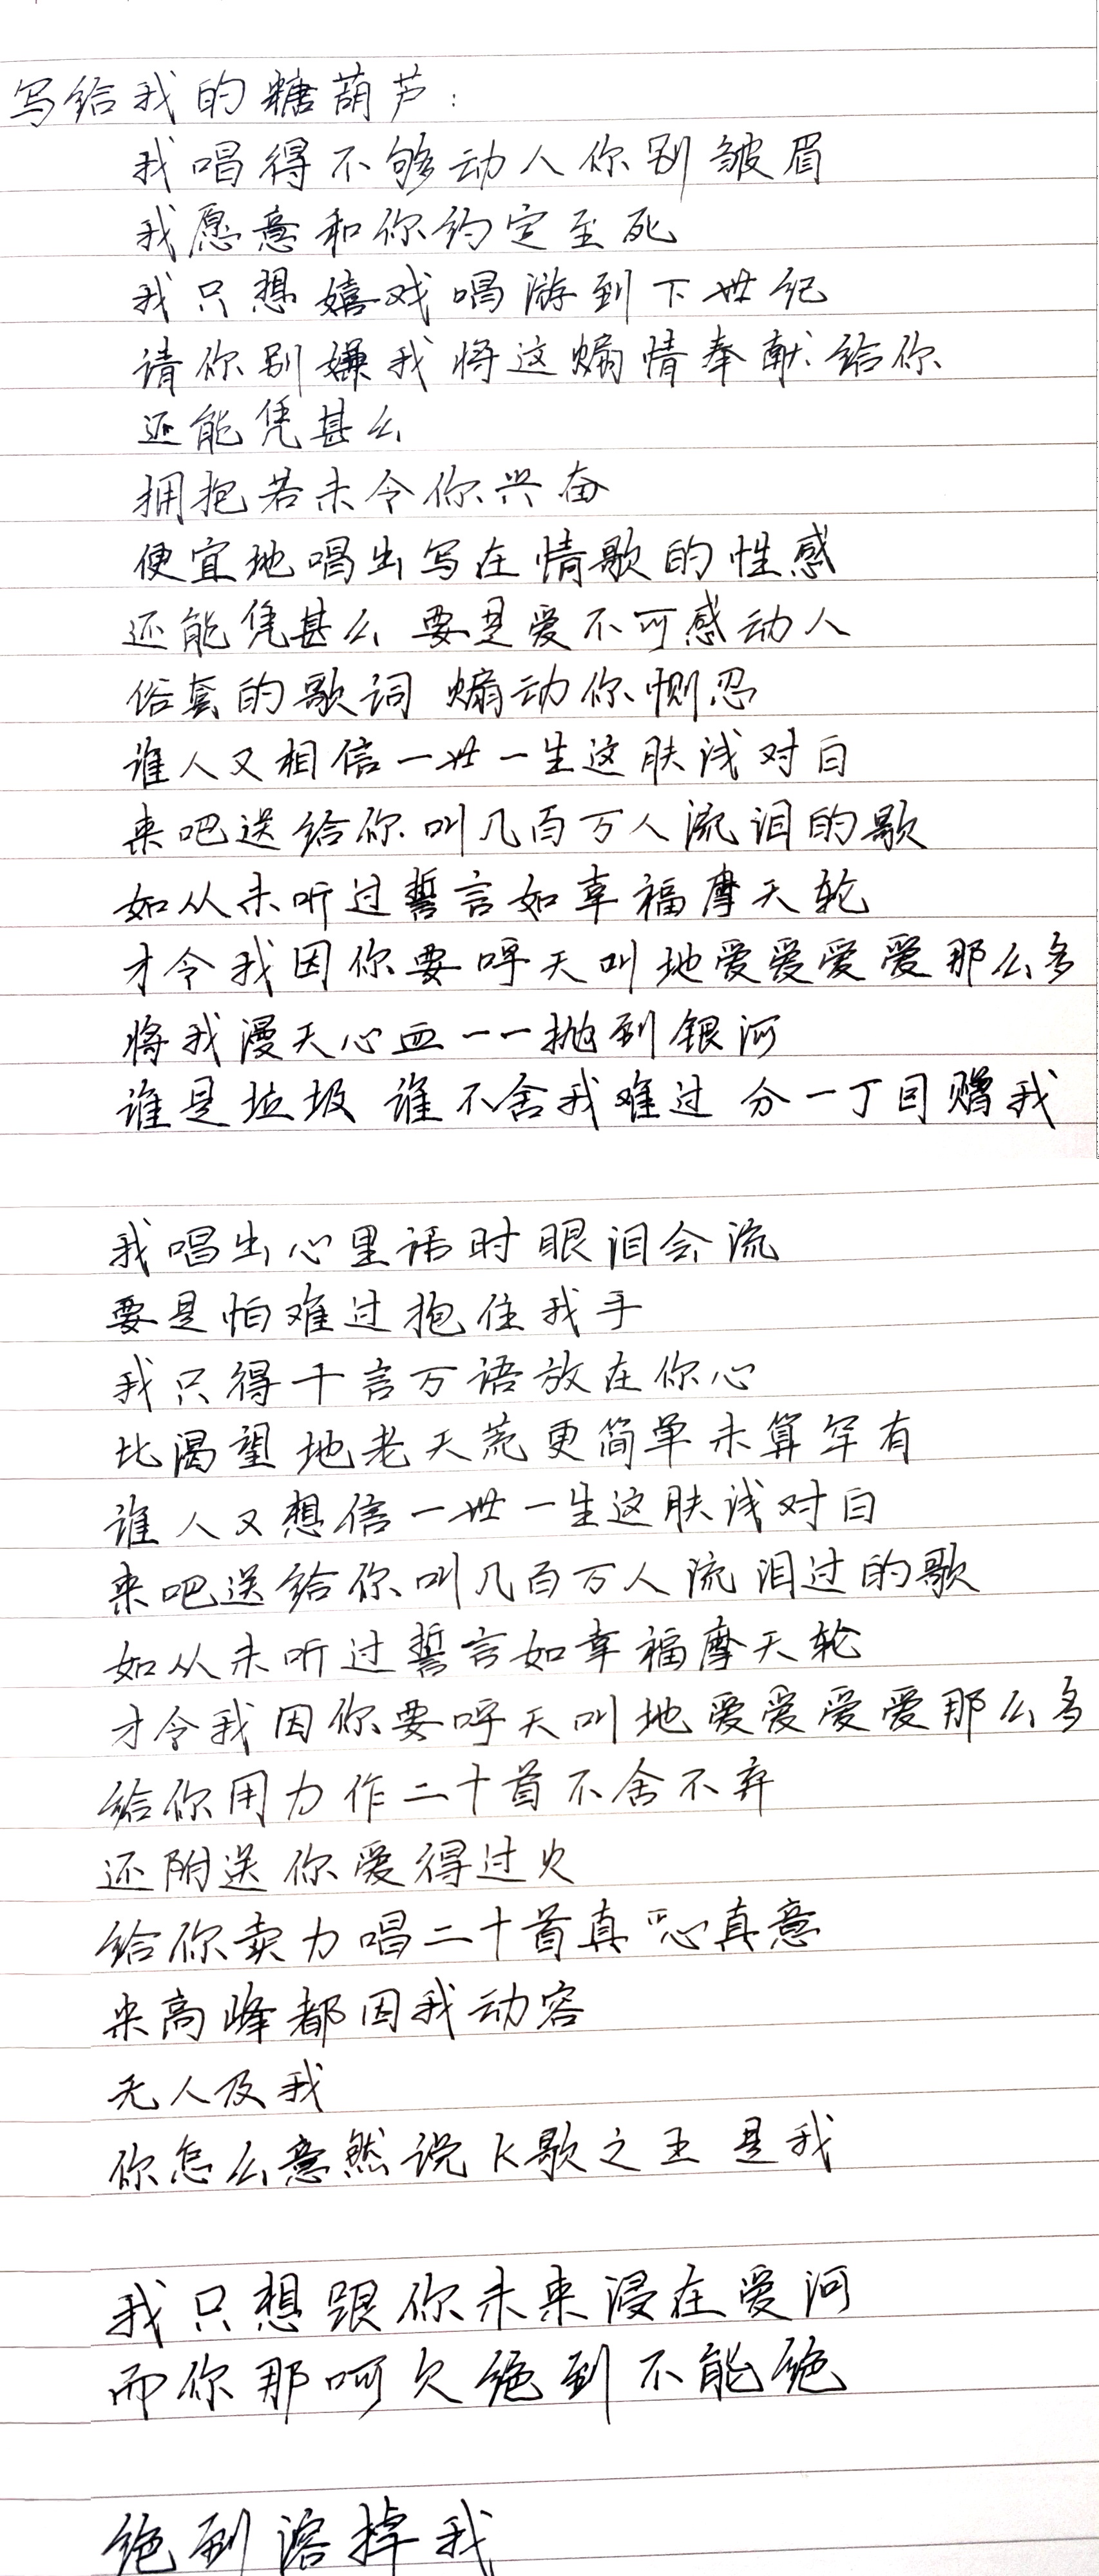 写给我的糖葫芦:
我唱得不够动人你别皱眉
我愿意和你约定至死
我只想嬉戏唱游到下世纪
请你别嫌我将这煽情奉献给你
还能凭甚么
拥抱若未令你兴奋
便宜地唱出写在情歌的性感
还能凭甚么 要是爱不可感动人
俗套的歌词 煽动你恻忍
谁人又相信一世一生这肤浅对白
来吧送给你叫几百万人流泪的歌
如从未听过誓言如幸福摩天轮
才令我因你要呼天叫地爱爱爱爱那么多
将我漫天心血一一抛到银河
谁是垃圾 谁不舍我难过 分一丁目赠我
我唱出心里话时眼泪会流
要是怕难过抱住我手
我只得千言万语放在你心
比渴望地老天荒更简单未算罕有
谁人又想信一世一生这肤浅对白
来吧送给你叫几百万人流泪过的歌
如从未听过誓言如幸福摩天轮
才令我因你要呼天叫地爱爱爱爱那么多
给你用力作二十首不舍不弃
还附送你爱得过火
给你卖力唱二十首真心真意
来高峰都因我动容
无人及我
你怎么意然说K歌之王是我
我只想跟你未来浸在爱河
而你那呵欠绝到不能绝
绝到溶掉我